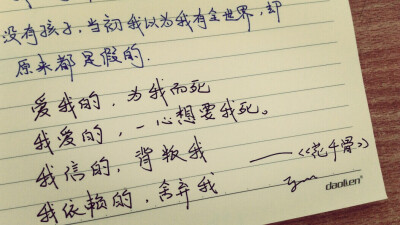 没有孩子,当初我以为我有全世界,却
原来都是假的.
爱我的,为我而死
我爱的,一心想要我死。
我信的,背叛我
——《花千骨》
我依赖的,舍弃我
daolien®